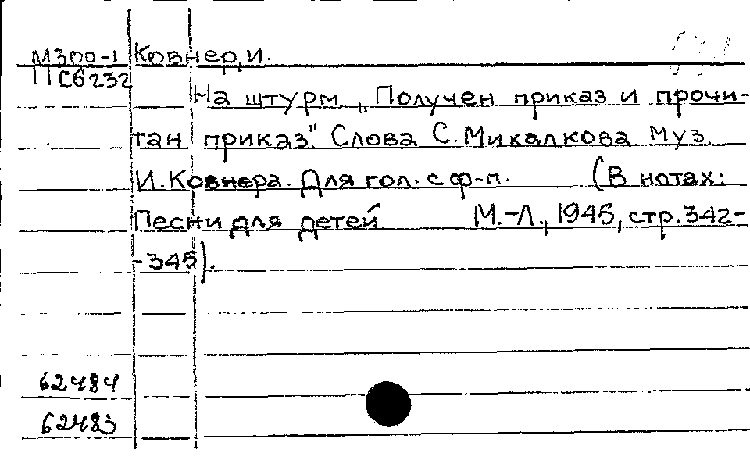 М300-1 Ковнер, И.
ПС6232
На штурм „Получен приказ и прочи-
тан приказ." Слова С. Михалкова Муз.
И. Ковнера. Для гол. с ф-п. (В нотах:
Песни для детей М.-Л., 1945, стр. 342-
-345).
62484
62483